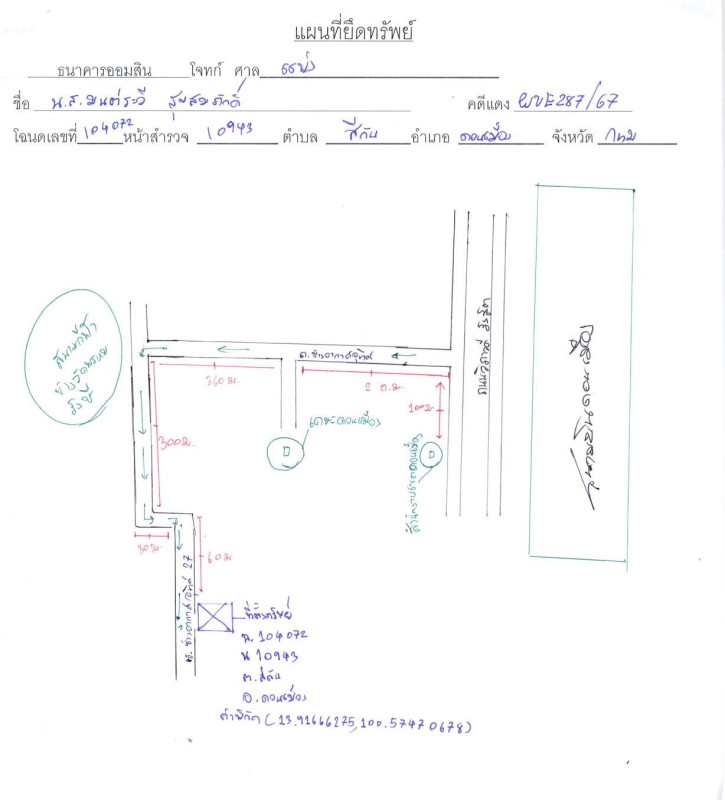 แผนที่ยึดทรัพย์
ธนาคารออมสิน โจทก์ ศาล แพ่ง
ชื่อ น.ส. มนต์ระวี สุขสมภักดิ์ คดีแดง ผบE287/67
โฉนดเลขที่ 104072 หน้าสำรวจ 10943 ตำบล สีกัน อำเภอ ดอนเมือง จังหวัด กทม
ถ.ช่างอากาศอุทิศ
360 ม.
2 ก.ม.
100 ม
300 ม.
เคหะดอนเมือง
สำนักงานเขตดอนเมือง
ถนนวิภาวดี รังสิต
สนามบินดอนเมือง
30 ม.
60 ม
ซ. ช่างอากาศอุทิศ 27
ที่ตั้งทรัพย์
ฉ. 104072
น 10943
ต. สีกัน
อ. ดอนเมือง
ค่าพิกัด (13.91666275,100.57470678)